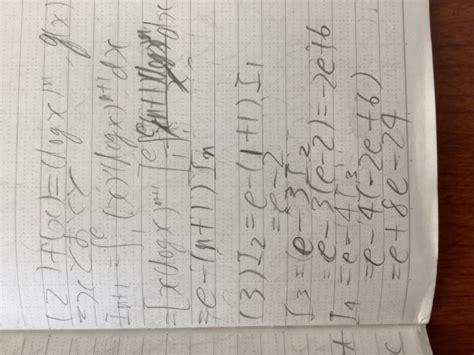 (2) f(x)=(logx)ⁿ g(x)
=xとおくと
I_{n+1}=∫₁ᵉ(x)'(logx)^{n+1}dx
=[x(logx)^{n+1}]₁ᵉ-∫₁ᵉ
=e-(n+1)I_n
(3) I₂=e-(1+1)I₁
=e-2
I₃=e-3I₂
=e-3(e-2)=-2e+6
I₄=e-4I₃
=e-4(-2e+6)
=e+8e-24